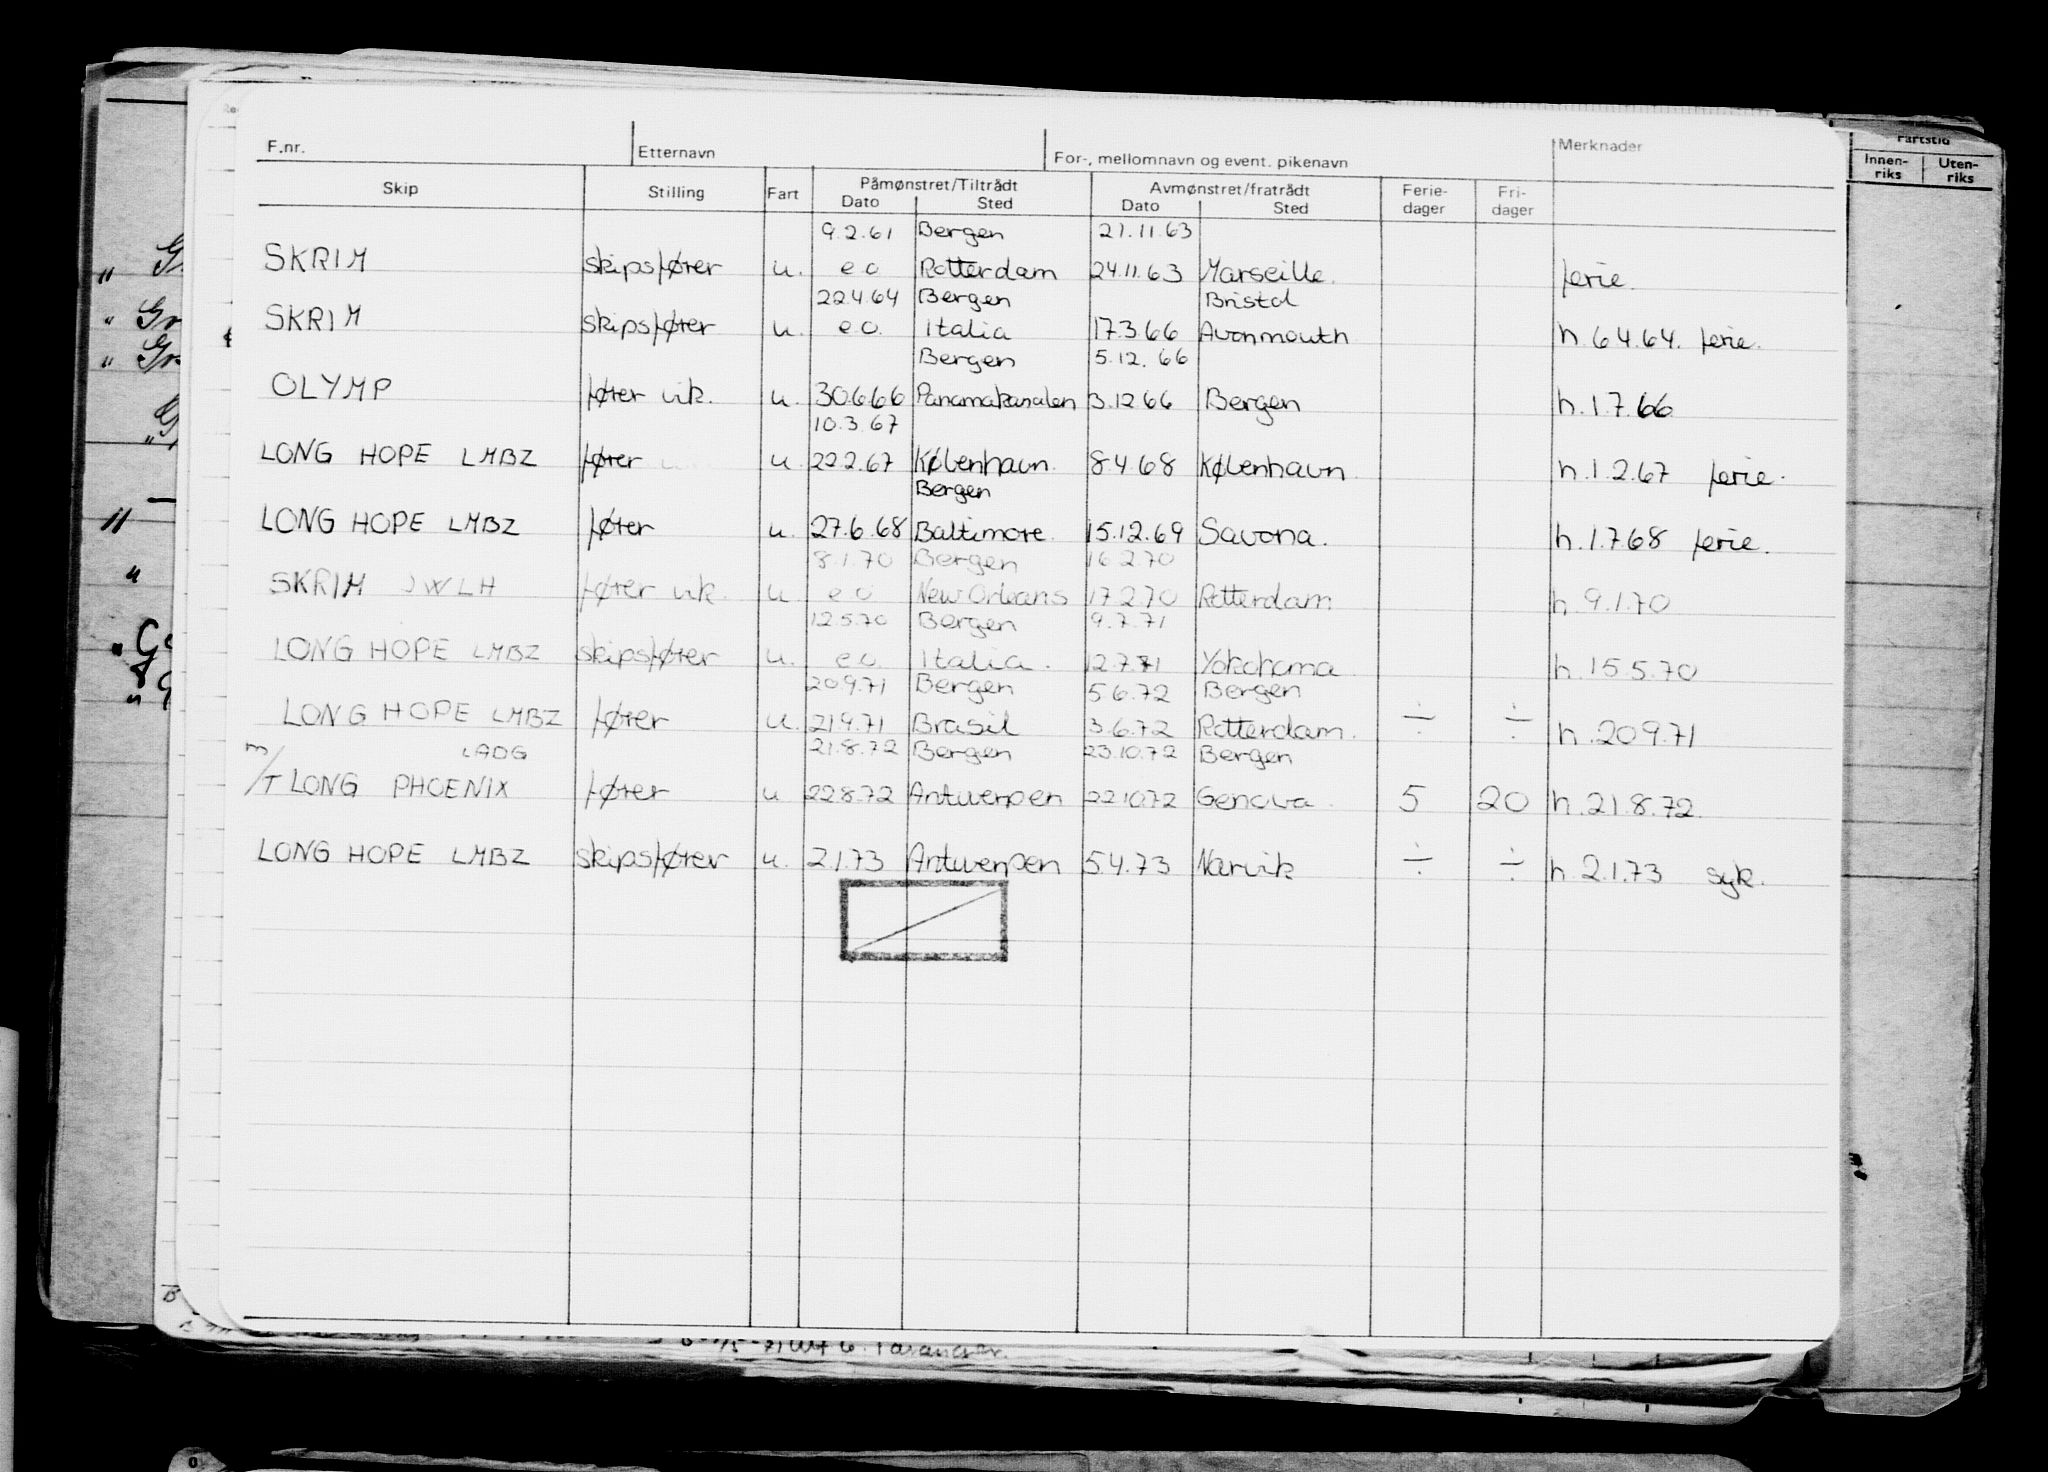 F.nr. Etternavn For-, mellomnavn og event. pikenavn Merknader
Skip Stilling Fart Påmønstret/Tiltrådt Avmønstret/fratrådt Ferie-dager Fri-dager
Dato Sted Dato Sted
9.2.61 Bergen 21.11.63
SKRIM skipsfører u. e o Rotterdam 24.11.63 Marseille. ferie.
22.4.64 Bergen Bristol
SKRIM skipsfører u. e o. Italia 17.3.66 Avonmouth h. 6.4.64. ferie.
Bergen 5.12.66
OLYMP fører vik. u. 30.6.66 Panamakanalen 3.12.66 Bergen h.1.7.66
10.3.67
LONG HOPE LMBZ fører u 22.2.67 København. 8.4.68 København. h.1.2.67 ferie.
Bergen
LONG HOPE LMBZ fører u. 27.6.68 Baltimore. 15.12.69 Savona. h.1.7.68 ferie.
8.1.70 Bergen 16.2.70
SKRIM JWLH fører vik. u e o New Orleans 17.2.70 Rotterdam h.9.1.70
12.5.70 Bergen 9.7.71
LONG HOPE LMBZ skipsfører u. e o. Italia. 12.7.71 Yokohama h.15.5.70
20.9.71 Bergen 5.6.72 Bergen
LONG HOPE LMBZ fører u. 21.9.71 Brasil 3.6.72 Rotterdam. ÷ ÷ h.20.9.71
LADG 21.8.72 Bergen 23.10.72 Bergen
m/T LONG PHOENIX fører u 22.8.72 Antwerpen 22.10.72 Genova. 5 20 h.21.8.72.
LONG HOPE LMBZ skipsfører u. 2.1.73 Antwerpen 5.4.73 Narvik ÷ ÷ h.2.1.73 syk.
Fartstid
Innen-riks Uten-riks